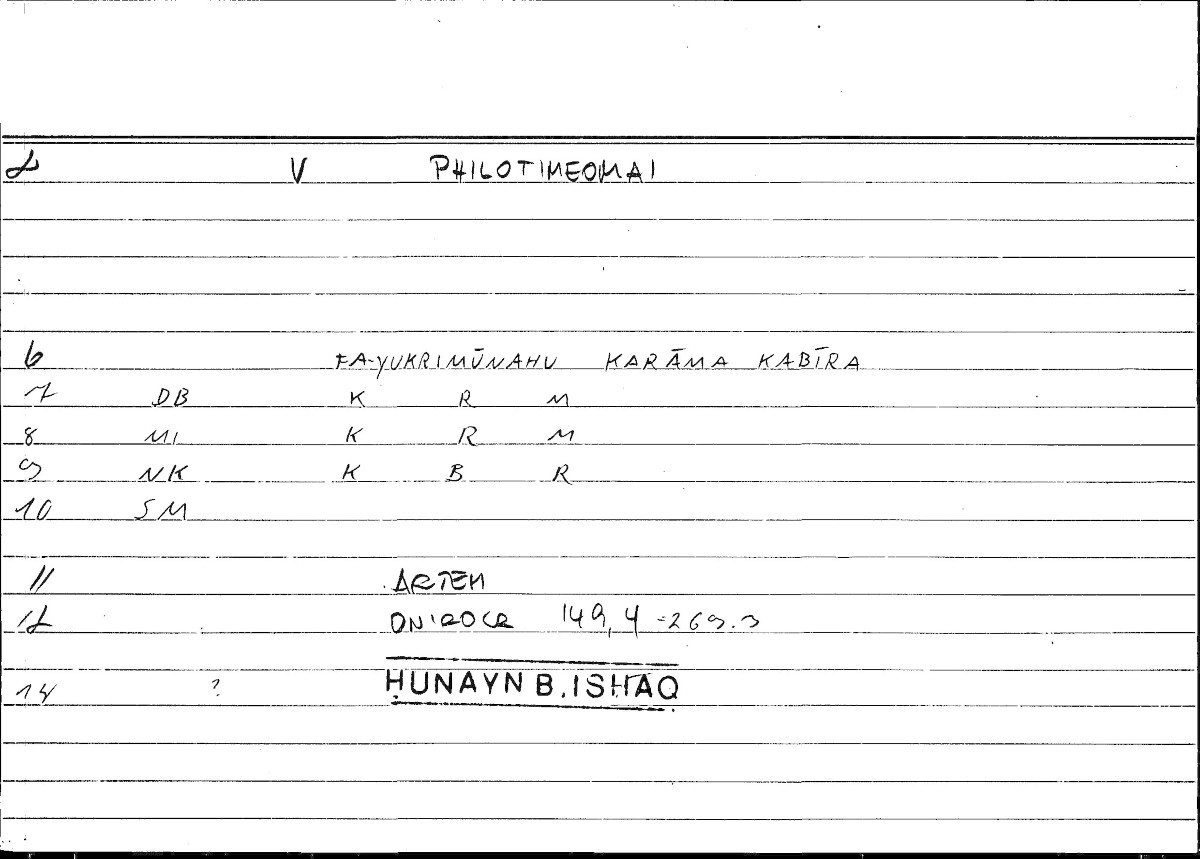 2 V PHILOTIMEOMAI
6 FA-YUKRIMŪNAHU KARĀMA KABĪRA
7 DB K R M
8 MI K R M
9 NK K B R
10 SM
11 ARTEM
12 ONIROCR 149,4 = 269.3
14 ? HUNAYN B. ISHAQ